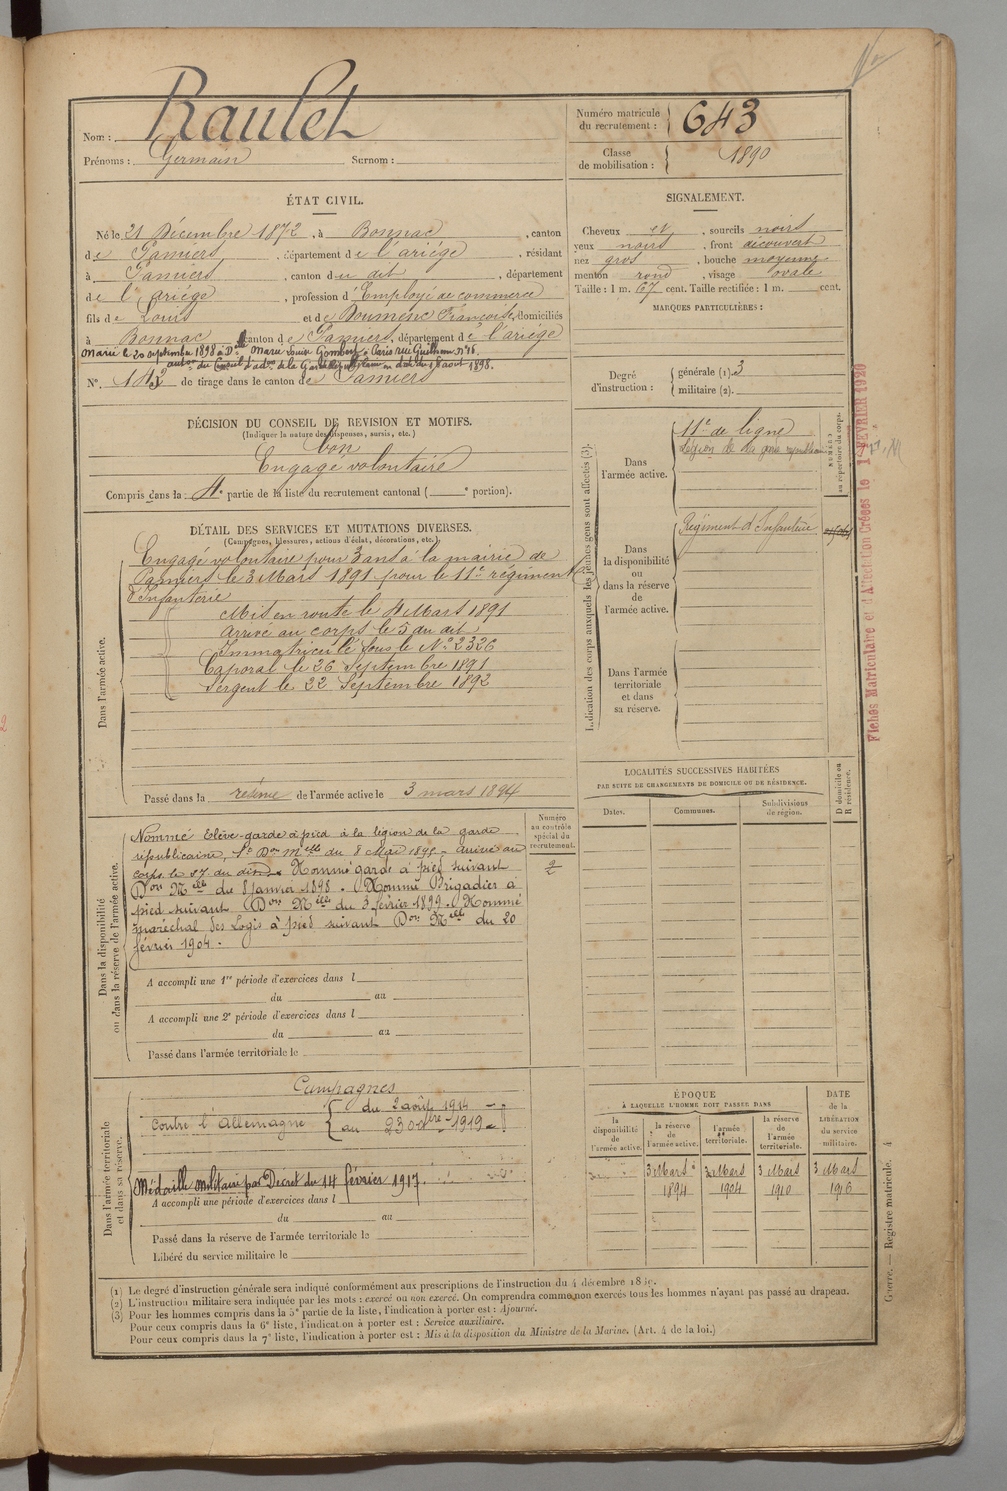 Nom : Raulet
Prénoms : Germain Surnom :
Numéro matricule du recrutement : 643
Classe de mobilisation : 1890
ÉTAT CIVIL.
Né le 21 Décembre 1872, à Bonnac, canton
de Pamiers, département de l'ariège, résidant
à Pamiers, canton du dit, département
de l'ariège, profession d'Employé de commerce
fils de Louis et de Doumenc Françoise, domiciliés
à Bonnac, canton de Pamiers, département de l'ariège
Marié le 20 septembre 1898 à Dlle Marie Louise Gombert à Paris rue Guilhem n° 16.
auton. du Conseil d'adon de la Garde Républicaine en date du 18 août 1898.
N° 142 de tirage dans le canton de Pamiers
SIGNALEMENT.
Cheveux et, sourcils noirs
yeux noirs, front découvert
nez gros, bouche moyenne
menton rond, visage ovale
Taille : 1 m. 67 cent. Taille rectifiée : 1 m. cent.
MARQUES PARTICULIÈRES :
Degré d'instruction : générale (1). 3
militaire (2).
DÉCISION DU CONSEIL DE REVISION ET MOTIFS.
(Indiquer la nature des dispenses, sursis, etc.)
bon
Engagé volontaire
Compris dans la 4e partie de la liste du recrutement cantonal ( e portion).
DÉTAIL DES SERVICES ET MUTATIONS DIVERSES.
(Campagnes, blessures, actions d'éclat, décorations, etc.)
Dans l'armée active.
Engagé volontaire pour 3 ans à la mairie de
Pamiers le 3 Mars 1891 pour le 11e régiment
d'Infanterie
Mis en route le 4 Mars 1891
Arrivé au corps le 5 du dit
Immatriculé sous le N° 2326
Caporal le 26 Septembre 1891
Sergent le 22 Septembre 1892
Passé dans la réserve de l'armée active le 3 mars 1894
Indication des corps auxquels les jeunes gens sont affectés (3).
NUMÉRO au répertoire du corps.
Dans l'armée active.
11e de ligne
Légion de la garde républicaine
Dans la disponibilité ou dans la réserve de l'armée active.
Régiment d'Infanterie
Dans l'armée territoriale et dans sa réserve.
Fiches Matriculaire et d'Affectation Créées le 1 FÉVRIER 1920
LOCALITÉS SUCCESSIVES HABITÉES
PAR SUITE DE CHANGEMENTS DE DOMICILE OU DE RÉSIDENCE.
Dates.
Communes.
Subdivisions de région.
D domicile ou R résidence.
Dans la disponibilité ou dans la réserve de l'armée active.
Numéro au contrôle spécial du recrutement.
Nommé Elève-garde à pied à la légion de la garde
républicaine, St Don Melle du 8 Mai 1895 - arrivé au
corps le 27 du dit. Nommé garde à pied suivant
Don Melle du 8 Janvier 1898. Nommé Brigadier à
pied suivant Don Melle du 3 février 1899. Nommé
maréchal des Logis à pied suivant Don Melle du 20
février 1904.
A accompli une 1re période d'exercices dans l
du au
A accompli une 2e période d'exercices dans l
du au
Passé dans l'armée territoriale le
Dans l'armée territoriale et dans sa réserve.
Campagnes
Contre l'Allemagne { du 2 août 1914
au 23 octbre 1919
Médaille militaire par Décret du 14 février 1917.
A accompli une période d'exercices dans l
du au
Passé dans la réserve de l'armée territoriale le
Libéré du service militaire le
ÉPOQUE
À LAQUELLE L'HOMME DOIT PASSER DANS
DATE de la LIBÉRATION du service militaire.
la disponibilité de l'armée active.
la réserve de l'armée active.
l'armée territoriale.
la réserve de l'armée territoriale.
3 Mars 3 Mars 3 Mars 3 Mars
1894 1904 1910 1916
(1) Le degré d'instruction générale sera indiqué conformément aux prescriptions de l'instruction du 4 décembre 1889.
(2) L'instruction militaire sera indiquée par les mots : exercé ou non exercé. On comprendra comme non exercés tous les hommes n'ayant pas passé au drapeau.
(3) Pour les hommes compris dans la 5e partie de la liste, l'indication à porter est : Ajourné.
Pour ceux compris dans la 6e liste, l'indication à porter est : Service auxiliaire.
Pour ceux compris dans la 7e liste, l'indication à porter est : Mis à la disposition du Ministre de la Marine. (Art. 4 de la loi.)
Guerre. — Registre matricule. 4